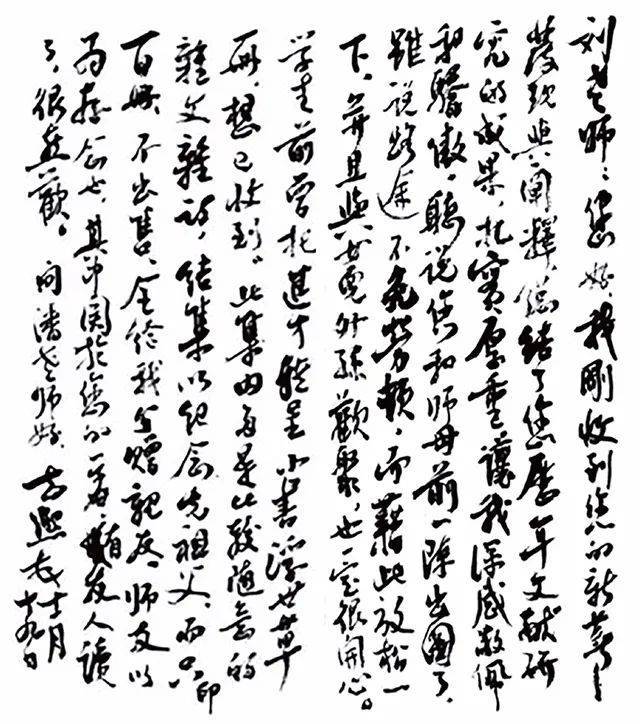 刘老师：您好。我刚收到您的新著《
发现与阐释》，总结了您历年文献研
究的成果，扎实厚重，让我深感敬佩
和骄傲。听说您和师母前一阵出国了，
虽说路途不免劳顿，而藉此放松一
下，并且与女儿外孙欢聚，也一定很开心。
学生前曾托进才兄呈小书浮世草
一册，想已收到。此集内多是比较随意的
杂文杂说，结集以纪念先祖父，而只印
百册，不出售，全给我分赠亲友、师友以
为存念也。其中关于您的一篇，有友人读
了，很喜欢。问潘老师好。志熙 十一月
十九日